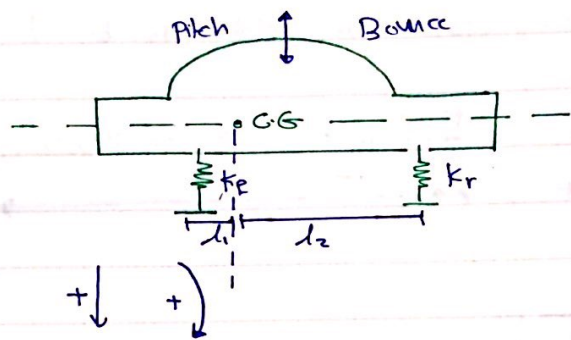 Pitch Bounce
C.G
kf kr
l1 l2
+ +